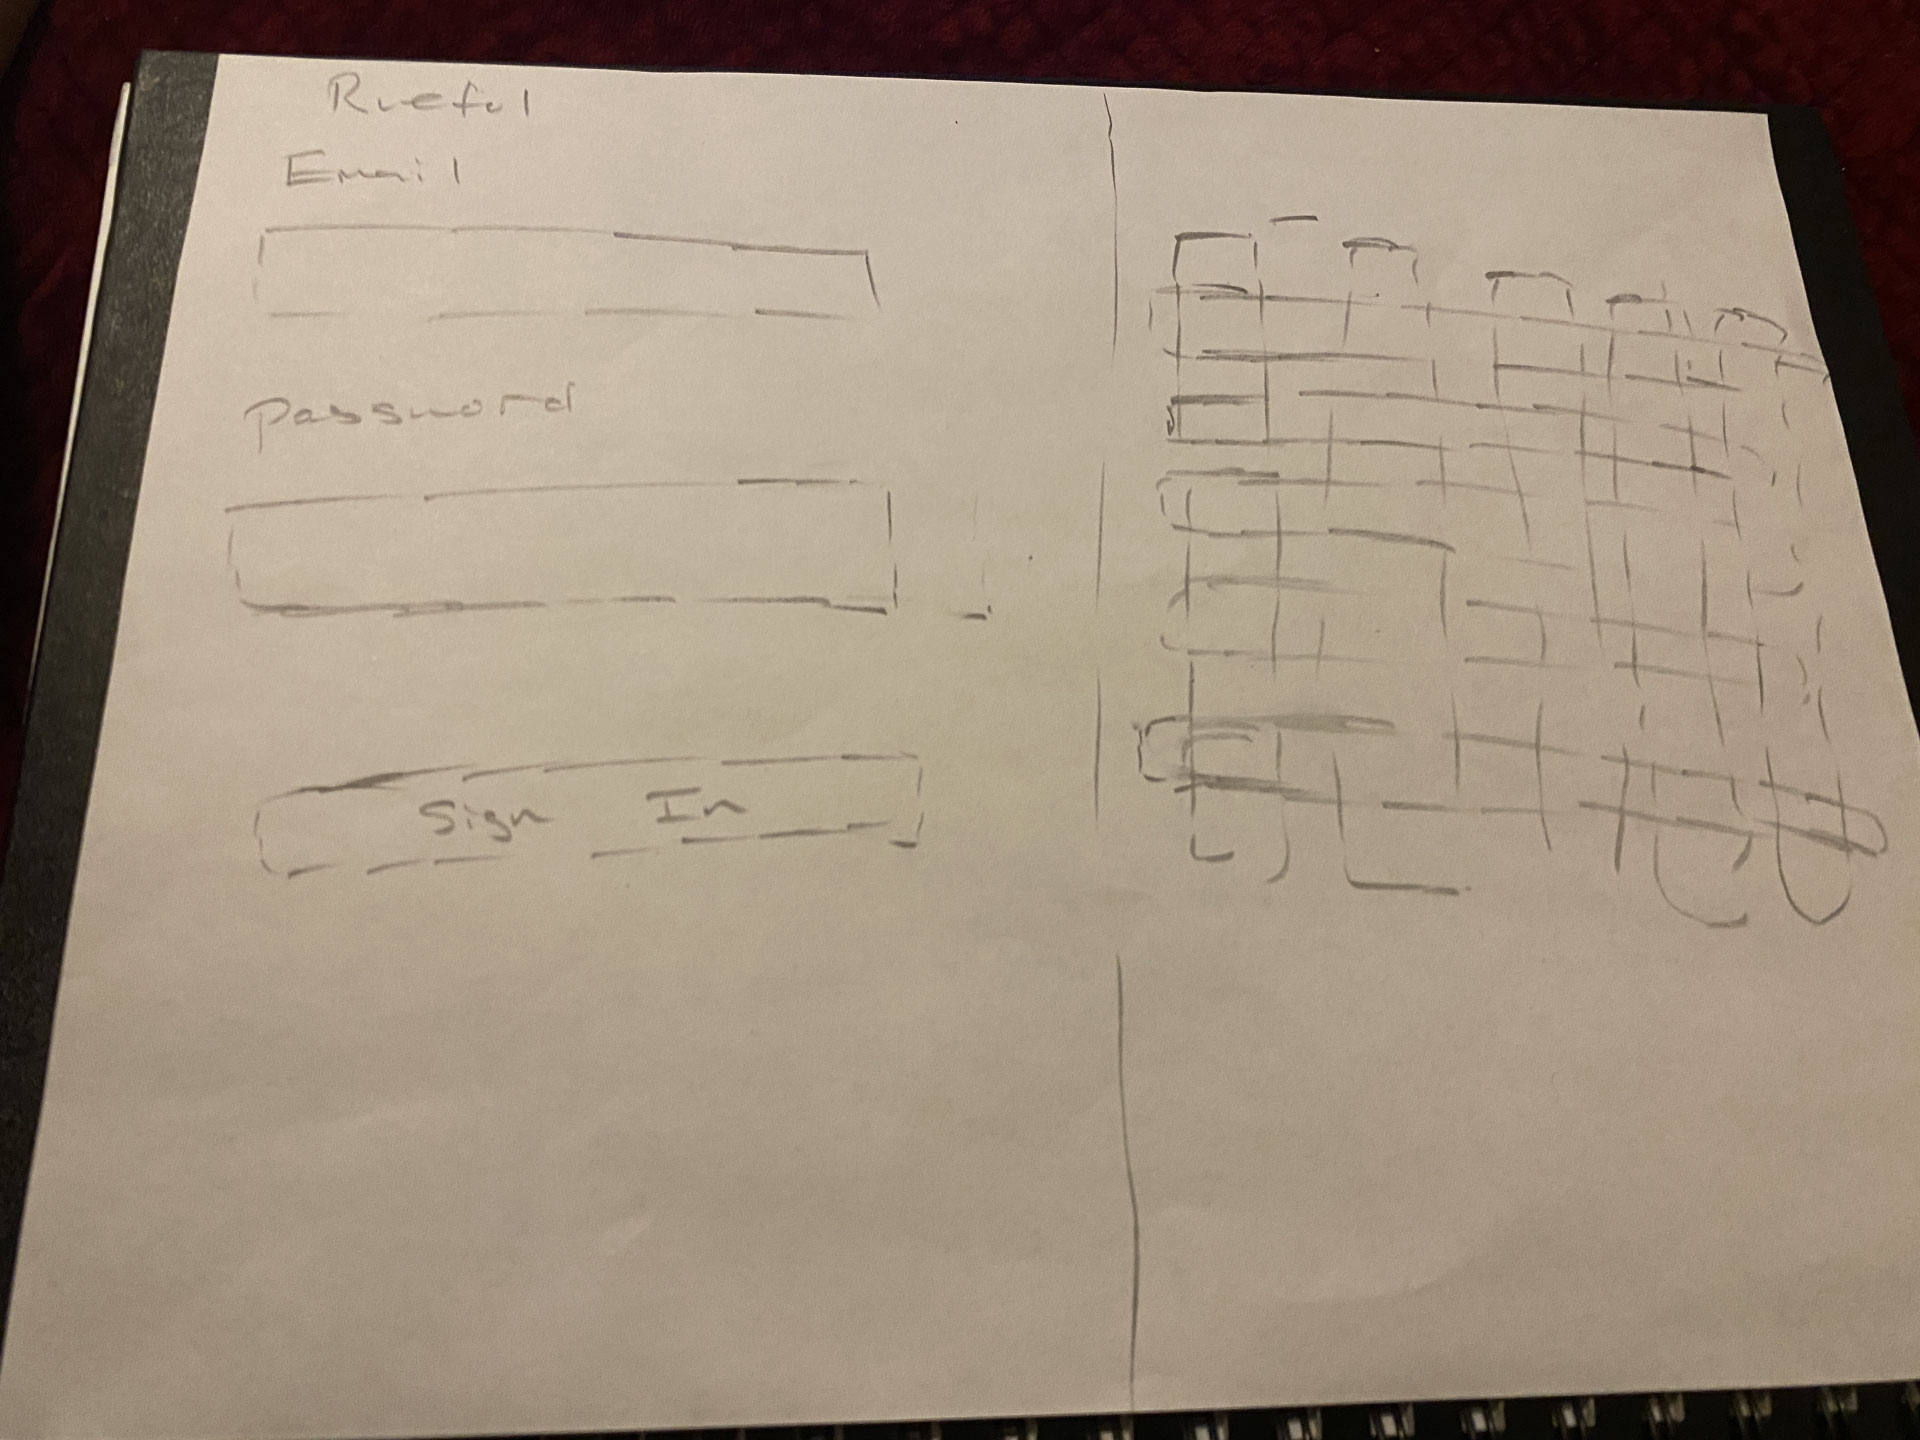 Rueful
Email
Password
Sign In